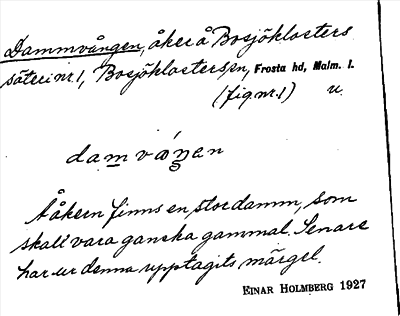 Dammvången, åker å Bosjöklosters
säteri nr 1, Bosjöklosters sn, Frosta hd, Malm. l.
(fig nr. 1) u.
damvåŋen
Å åkern finns en stor damm, som
skall vara ganska gammal. Senare
har ur denna upptagits märgel.
EINAR HOLMBERG 1927